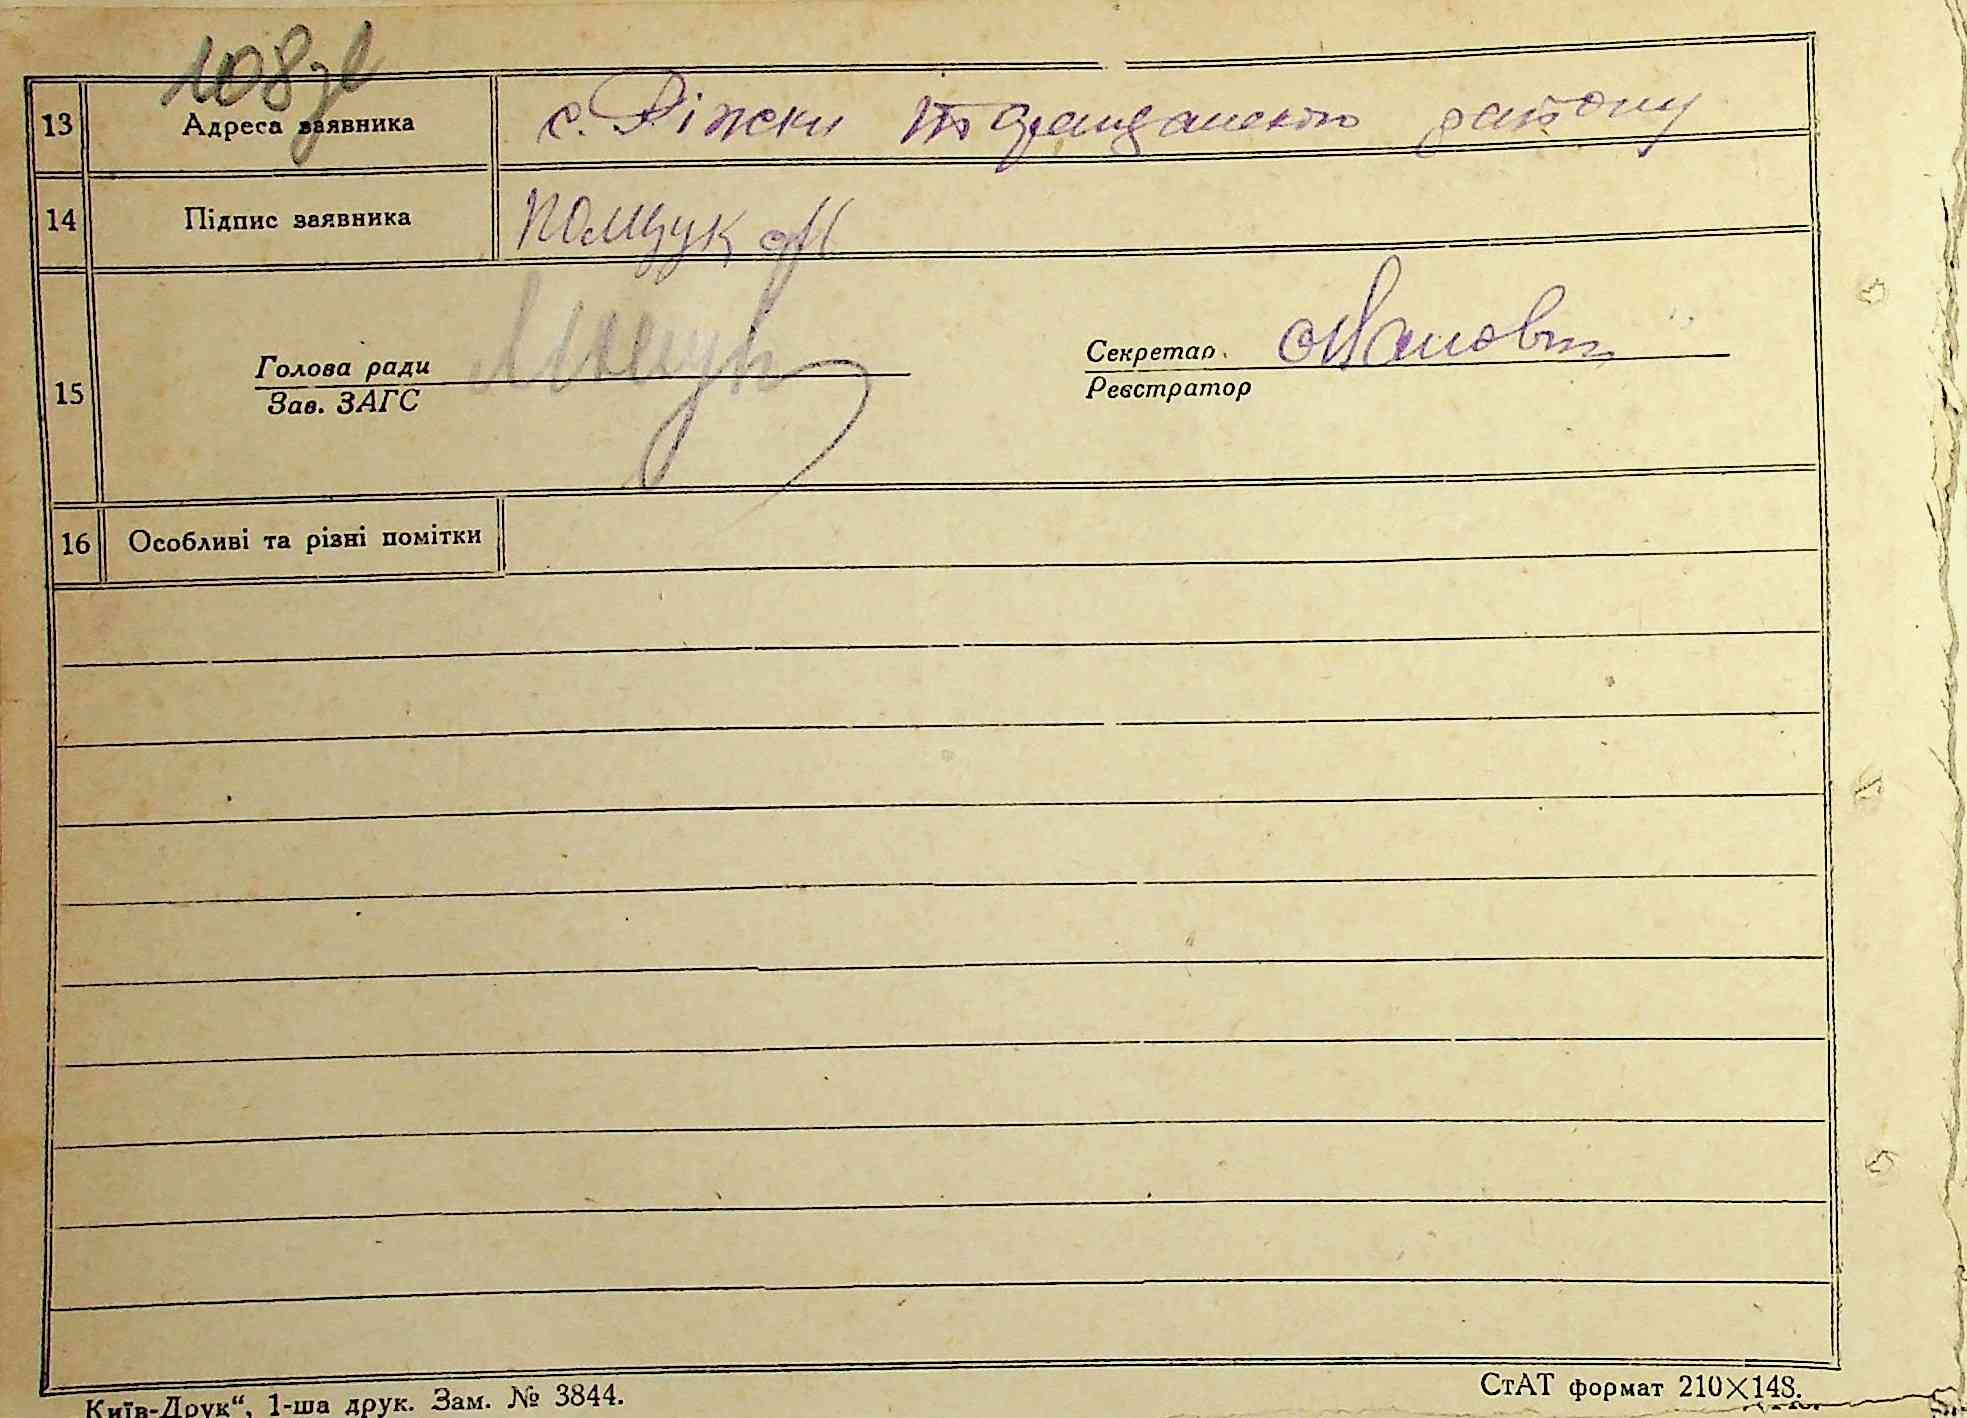 108зв
13 Адреса заявника с. Ріжки Таращанського району
14 Підпис заявника Поліщук М
15 Голова ради Секретар.
Зав. ЗАГС Реєстратор
16 Особливі та різні помітки
Київ-Друк“, 1-ша друк. Зам. № 3844.
СтАТ формат 210×148.